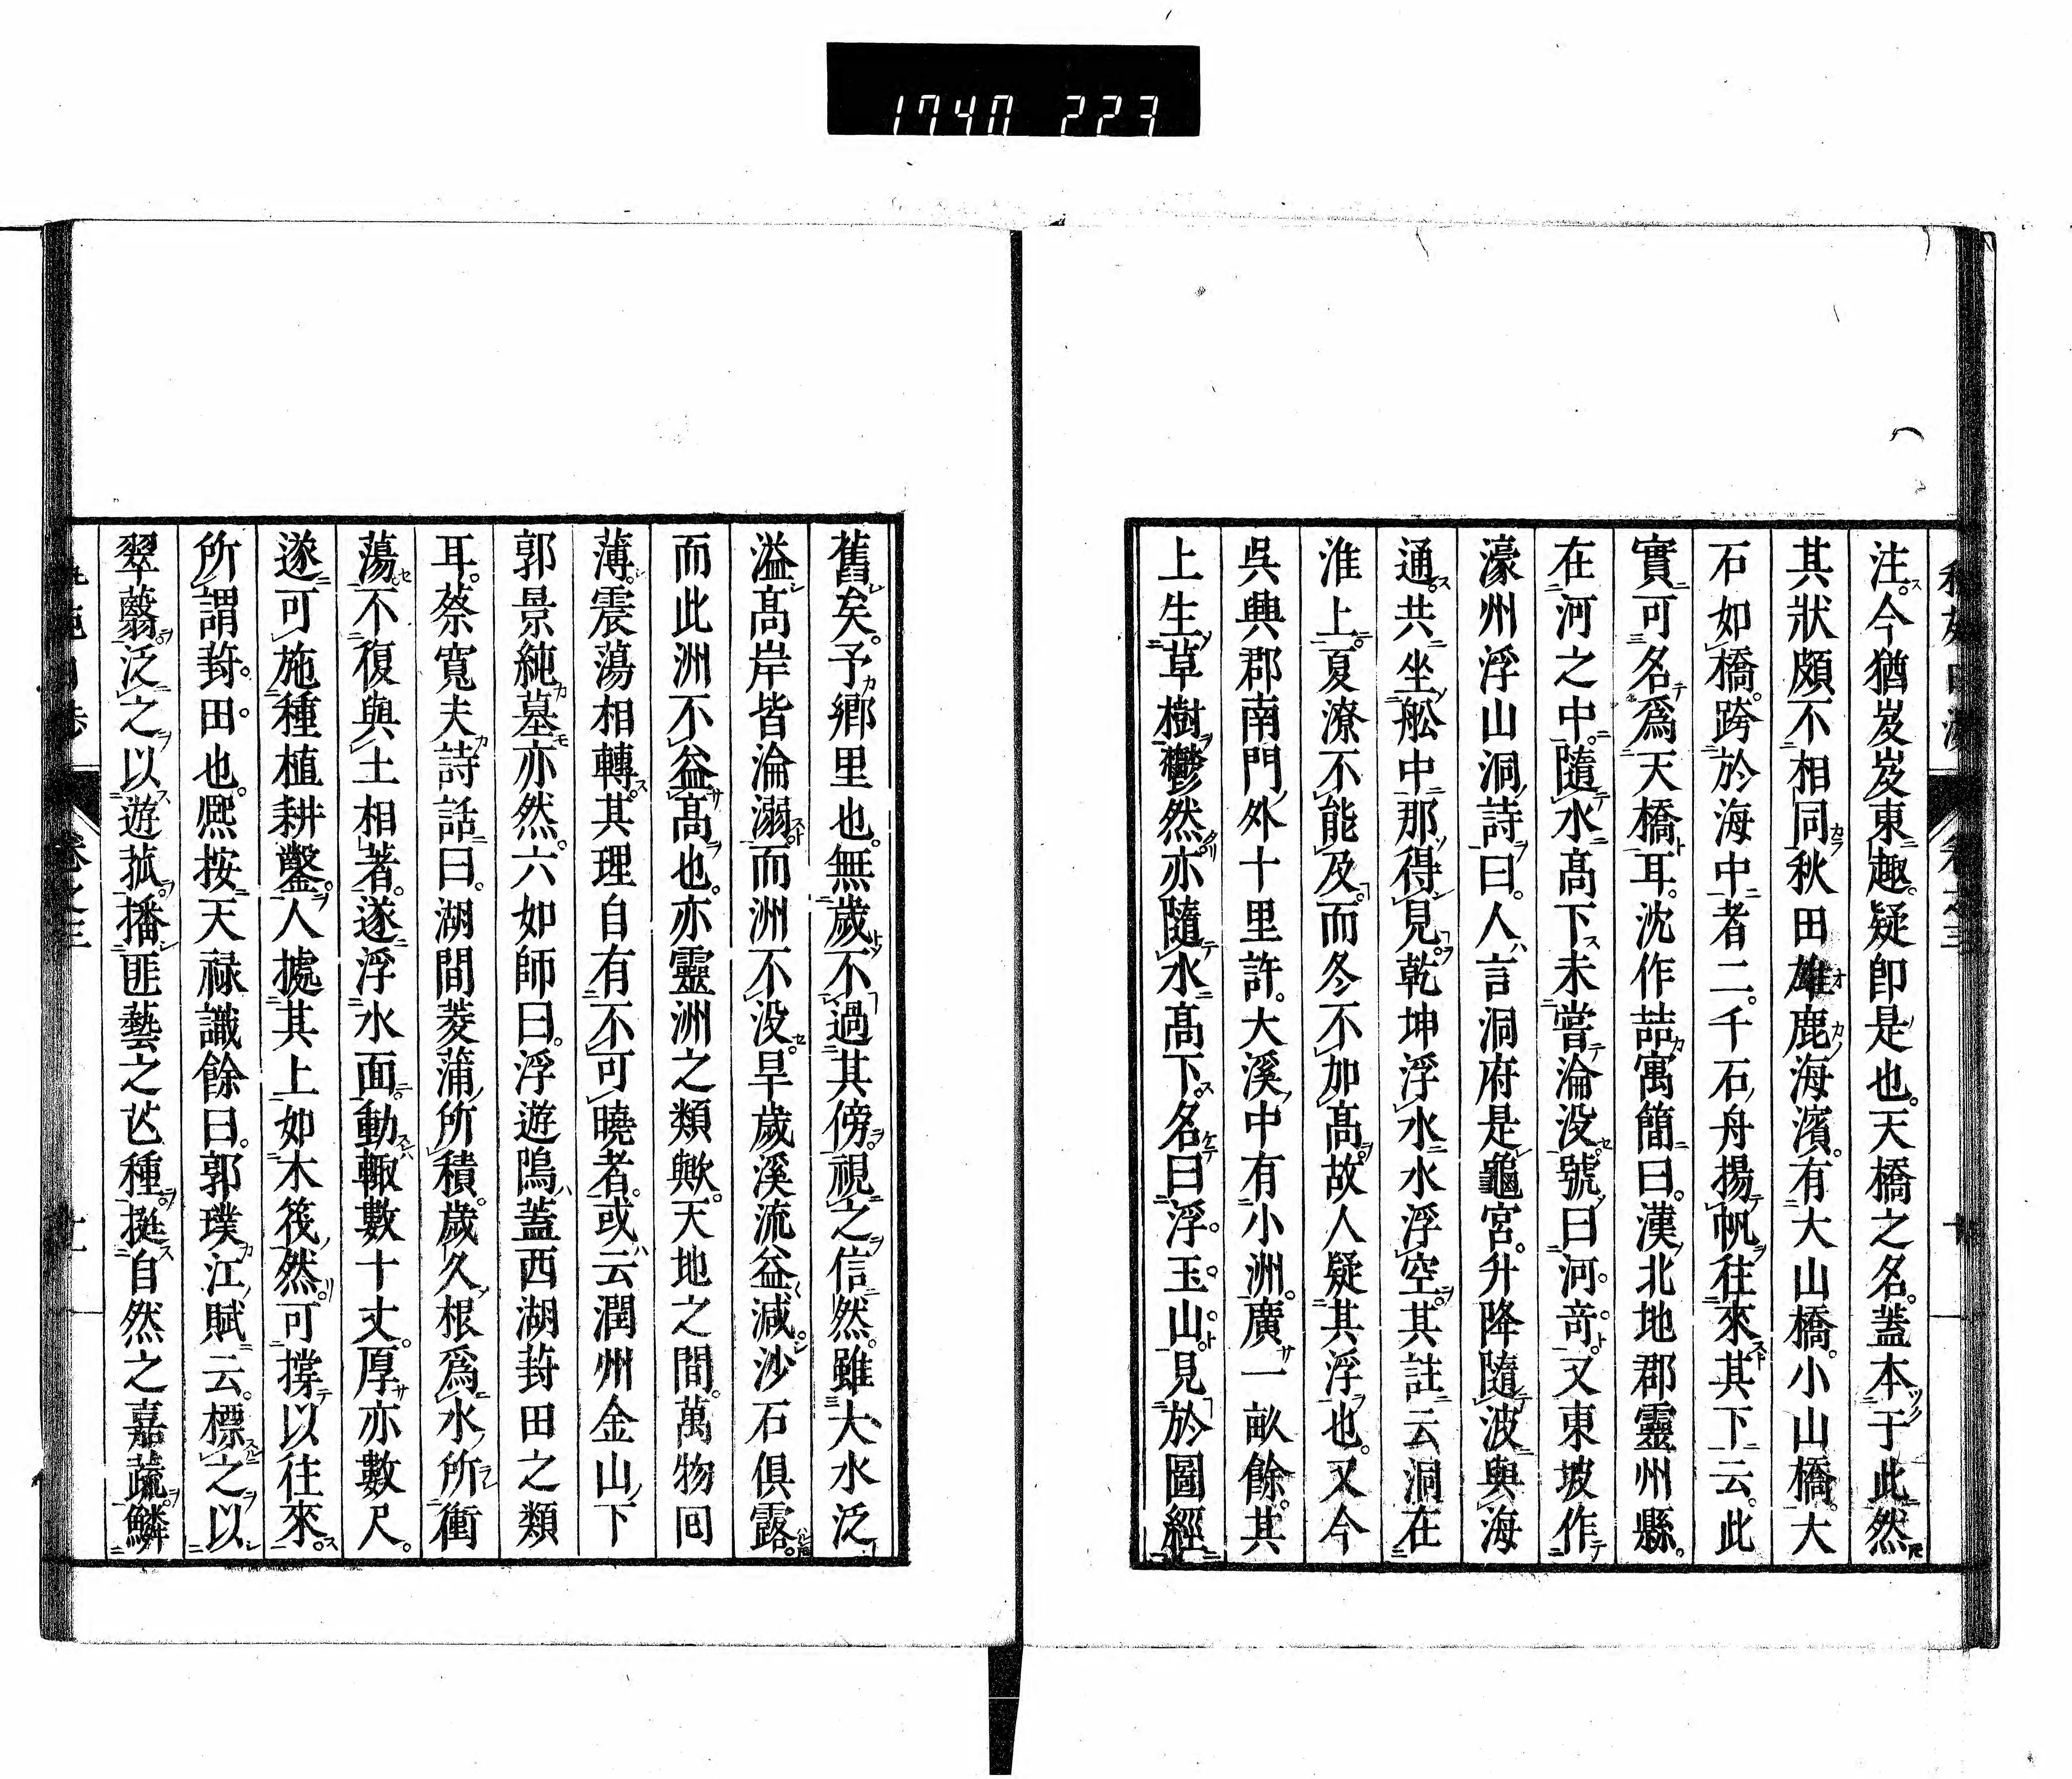 1740 223
注。今猶岌岌東趣。疑卽是也。天橋之名。蓋本于此然
其狀頗不相同秋田雄鹿海濱。有大山橋。小山橋。大
石如橋。跨於海中者二。千石舟揚帆往來其下云。此
實可名爲天橋耳。沈作喆寓簡曰。漢北地郡靈州縣。
在河之中。隨水髙下未嘗淪没。號曰河奇。又東坡作
濠州浮山洞詩曰。人言洞府是龜宮。升降隨波與海
通。共坐舩中那得見。乾坤浮水水浮空。其註云洞在
淮上。夏潦不能及。而冬不加髙。故人疑其浮也。又今
呉興郡南門外十里許。大溪中有小洲。廣一畝餘。其
上生草樹鬱然。亦隨水髙下。名曰浮。玉。山。見於圖經
舊矣。予鄉里也。無歲不過其傍。視之信然。雖大水泛
溢髙岸皆淪溺。而洲不没。旱歲溪流益減。沙石俱露。
而此洲不益髙也。亦靈洲之類歟。天地之間。萬物囘
薄。震蕩相轉。其理自有不可曉者。或云潤州金山下
郭景純墓亦然。六如師曰。浮遊嶋。蓋西湖葑田之類
耳。蔡寬夫詩話曰。湖間菱蒲所積。歲久根爲水所衝
蕩。不復與土相著。遂浮水面。動輙數十丈。厚亦數尺。
遂可施種植耕鑿。人據其上。如木筏然。可撐以往來。
所謂葑。田。也。熈按天禄識餘曰。郭璞江賦云。標之以
翠蘙。泛之以遊菰。播匪藝之芒種。挺自然之嘉蔬。鱗
卷之三